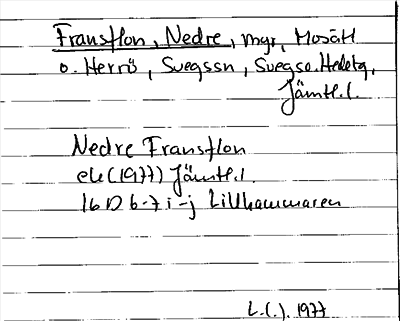 Fransflon, Nedre, myr, Mosätt
o. Herrö, Svegssn, Svegs o. Hedetg,
Jämtl.l.
Nedre Fransflon
ek (1977) Jämtl.l.
16D 6-7 i-j Lillhammaren
L.(.). 1977